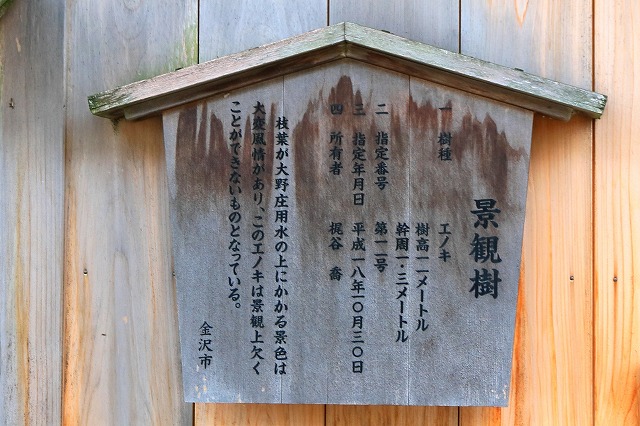 景観樹
一 樹種 エノキ
樹高一一メートル
幹周一・三メートル
二 指定番号 第一二号
三 指定年月日 平成一八年一〇月三〇日
四 所有者 梶谷 喬
枝葉が大野庄用水の上にかかる景色は
大変風情があり、このエノキは景観上欠く
ことができないものとなっている。
金沢市